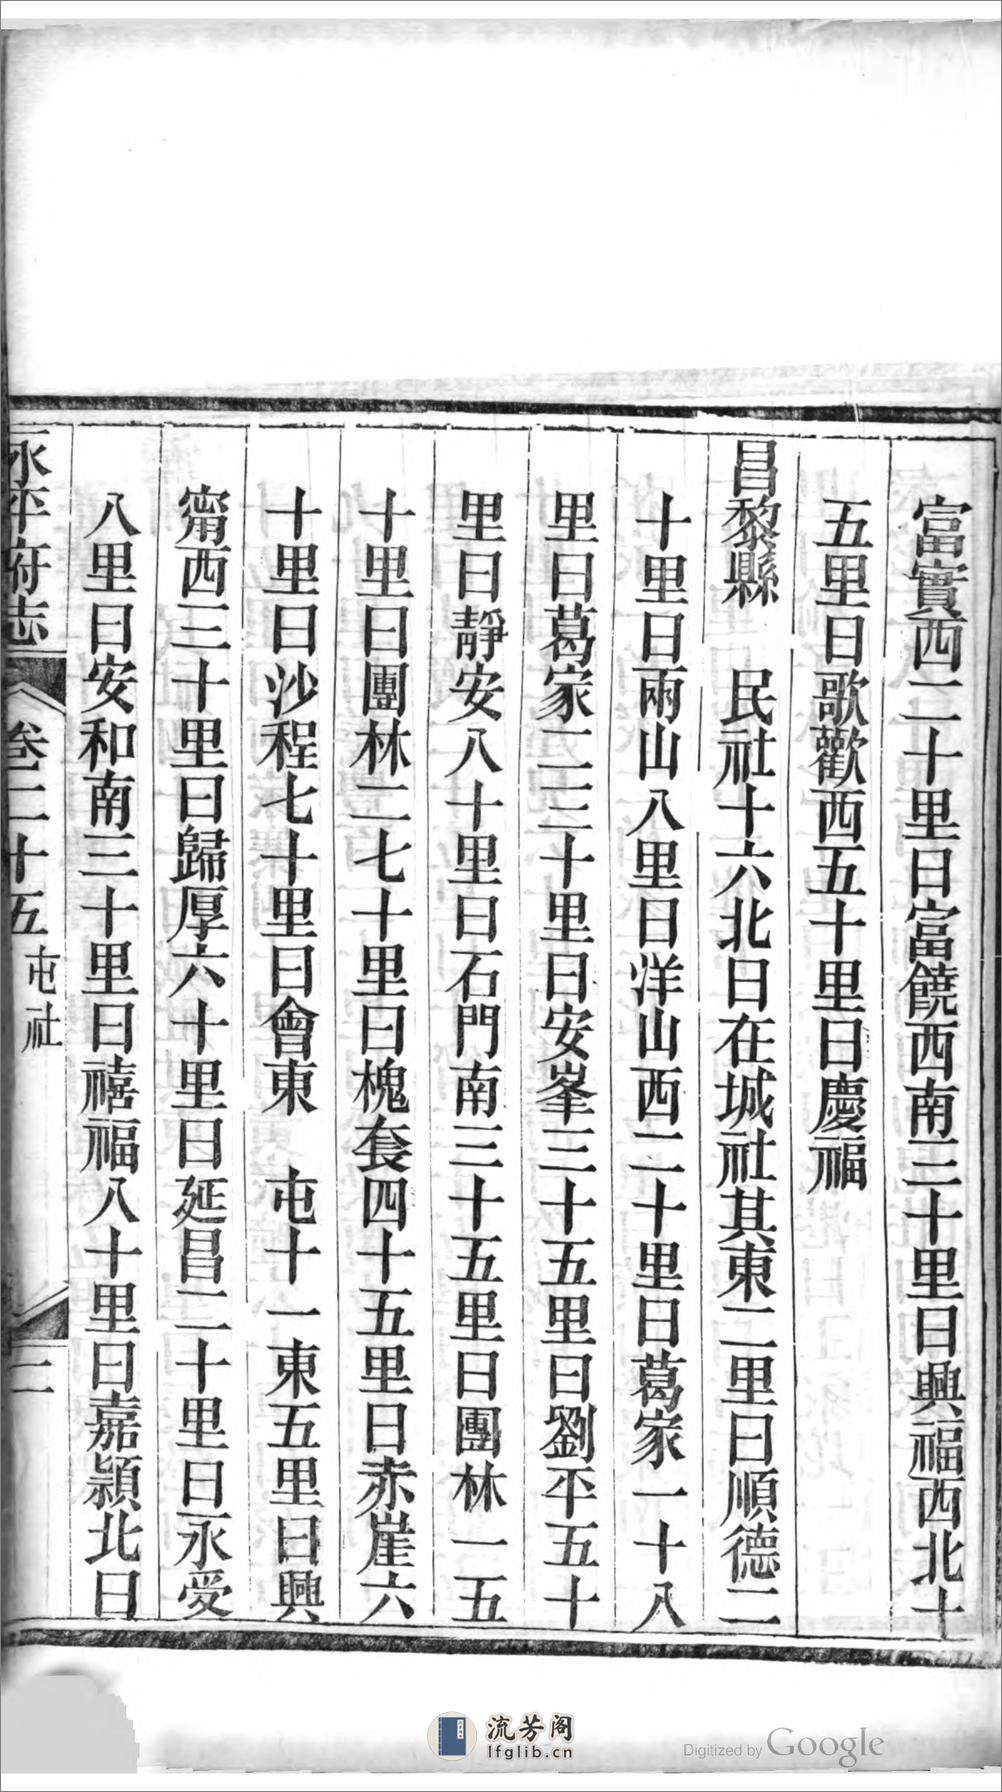 富實西二十里曰富饒西南三十里曰興福西北十
五里曰歌歡西五十里曰慶福
昌黎縣　民社十六北曰在城社其東二里曰順德二
十里曰兩山八里曰洋山西二十里曰葛家一十八
里曰葛家二三十里曰安峯三十五里曰劉平五十
里曰靜安八十里曰石門南三十五里曰團林一五
十里曰團林二七十里曰槐套四十五里曰赤崖六
十里曰沙程七十里曰會東　屯十一東五里曰興
甯西三十里曰歸厚六十里曰延昌二十里曰永受
八里曰安和南三十里曰禧福八十里曰嘉潁北曰
永平府志　卷二十五　屯社　二
流芳阁
lfglib.cn
Digitized by Google